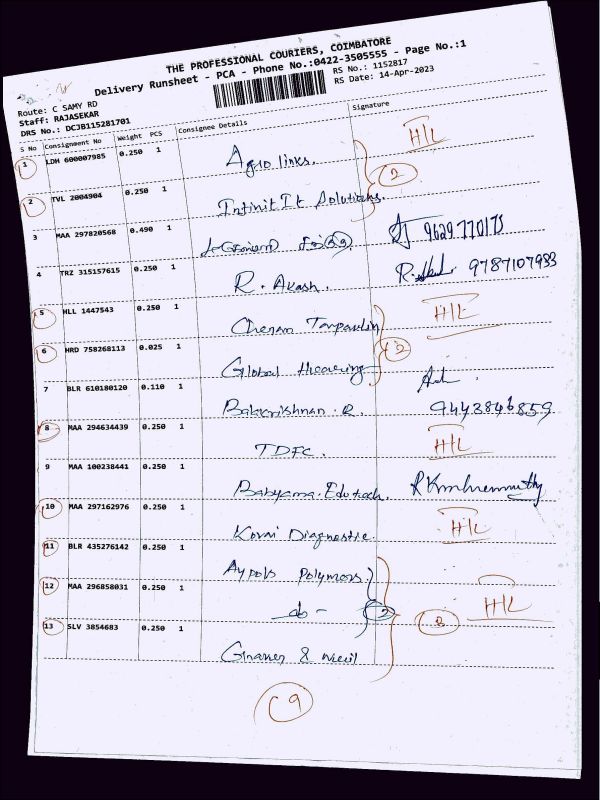 THE PROFESSIONAL COURIERS, COIMBATORE
Delivery Runsheet - PCA - Phone No.:0422-3505555 - Page No.:1
Route: C SAMY RD RS No.: 1152817
Staff: RAJASEKAR RS Date: 14-Apr-2023
DRS No.: DCJB115281701
S No Consignment No Weight PCS Consignee Details Signature
1 LDH 600007985 0.250 1 Agro links. H/L
2 TVL 2004904 0.250 1 Infinit It Solutions 2
3 MAA 297820568 0.490 1 9629770173
4 TRZ 315157615 0.250 1 R. Akash. 9787107983
5 HLL 1447543 0.250 1 Cheran Tarpaulin H/L
6 HRD 758268113 0.025 1 Global Hearing 2
7 BLR 610180120 0.110 1 Balakrishnan. R. 9443846859
8 MAA 294634439 0.250 1 TDFC. H/L
9 MAA 100238441 0.250 1
10 MAA 297162976 0.250 1 Kovai Diagnostic H/L
11 BLR 435276142 0.250 1 Aypols Polymers
12 MAA 296858031 0.250 1 -do- 2 3 H/L
13 SLV 3854683 0.250 1
9